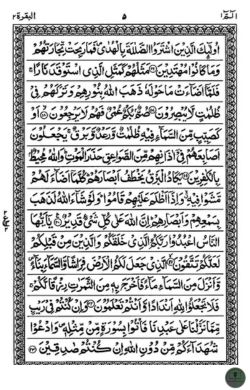 البقرة ٢ ٥ الٓمّٓ ١
اُولٰٓئِكَ الَّذِيْنَ اشْتَرَوُا الضَّلٰلَةَ بِالْهُدٰى فَمَا رَبِحَتْ تِّجَارَتُهُمْ
وَمَا كَانُوْا مُهْتَدِيْنَ ۝ مَثَلُهُمْ كَمَثَلِ الَّذِى اسْتَوْقَدَ نَارًا ۚ
فَلَمَّآ اَضَآءَتْ مَا حَوْلَهٗ ذَهَبَ اللّٰهُ بِنُوْرِهِمْ وَتَرَكَهُمْ فِىْ
ظُلُمٰتٍ لَّا يُبْصِرُوْنَ ۝ صُمٌّۢ بُكْمٌ عُمْىٌ فَهُمْ لَا يَرْجِعُوْنَ ۝ اَوْ
كَصَيِّبٍ مِّنَ السَّمَآءِ فِيْهِ ظُلُمٰتٌ وَّرَعْدٌ وَّبَرْقٌ ۚ يَجْعَلُوْنَ
اَصَابِعَهُمْ فِىْٓ اٰذَانِهِمْ مِّنَ الصَّوَاعِقِ حَذَرَ الْمَوْتِ ؕ وَاللّٰهُ مُحِيْطٌۢ
بِالْكٰفِرِيْنَ ۝ يَكَادُ الْبَرْقُ يَخْطَفُ اَبْصَارَهُمْ ؕ كُلَّمَآ اَضَآءَ لَهُمْ
مَّشَوْا فِيْهِ ۙ وَاِذَآ اَظْلَمَ عَلَيْهِمْ قَامُوْا ؕ وَلَوْ شَآءَ اللّٰهُ لَذَهَبَ
بِسَمْعِهِمْ وَاَبْصَارِهِمْ ؕ اِنَّ اللّٰهَ عَلٰى كُلِّ شَىْءٍ قَدِيْرٌ ۝ يٰٓاَيُّهَا
النَّاسُ اعْبُدُوْا رَبَّكُمُ الَّذِىْ خَلَقَكُمْ وَالَّذِيْنَ مِنْ قَبْلِكُمْ
لَعَلَّكُمْ تَتَّقُوْنَ ۝ الَّذِىْ جَعَلَ لَكُمُ الْاَرْضَ فِرَاشًا وَّالسَّمَآءَ بِنَآءً
وَّاَنْزَلَ مِنَ السَّمَآءِ مَآءً فَاَخْرَجَ بِهٖ مِنَ الثَّمَرٰتِ رِزْقًا لَّكُمْ ۚ
فَلَا تَجْعَلُوْا لِلّٰهِ اَنْدَادًا وَّاَنْتُمْ تَعْلَمُوْنَ ۝ وَاِنْ كُنْتُمْ فِىْ رَيْبٍ
مِّمَّا نَزَّلْنَا عَلٰى عَبْدِنَا فَاْتُوْا بِسُوْرَةٍ مِّنْ مِّثْلِهٖ ۪ وَادْعُوْا
شُهَدَآءَكُمْ مِّنْ دُوْنِ اللّٰهِ اِنْ كُنْتُمْ صٰدِقِيْنَ ۝